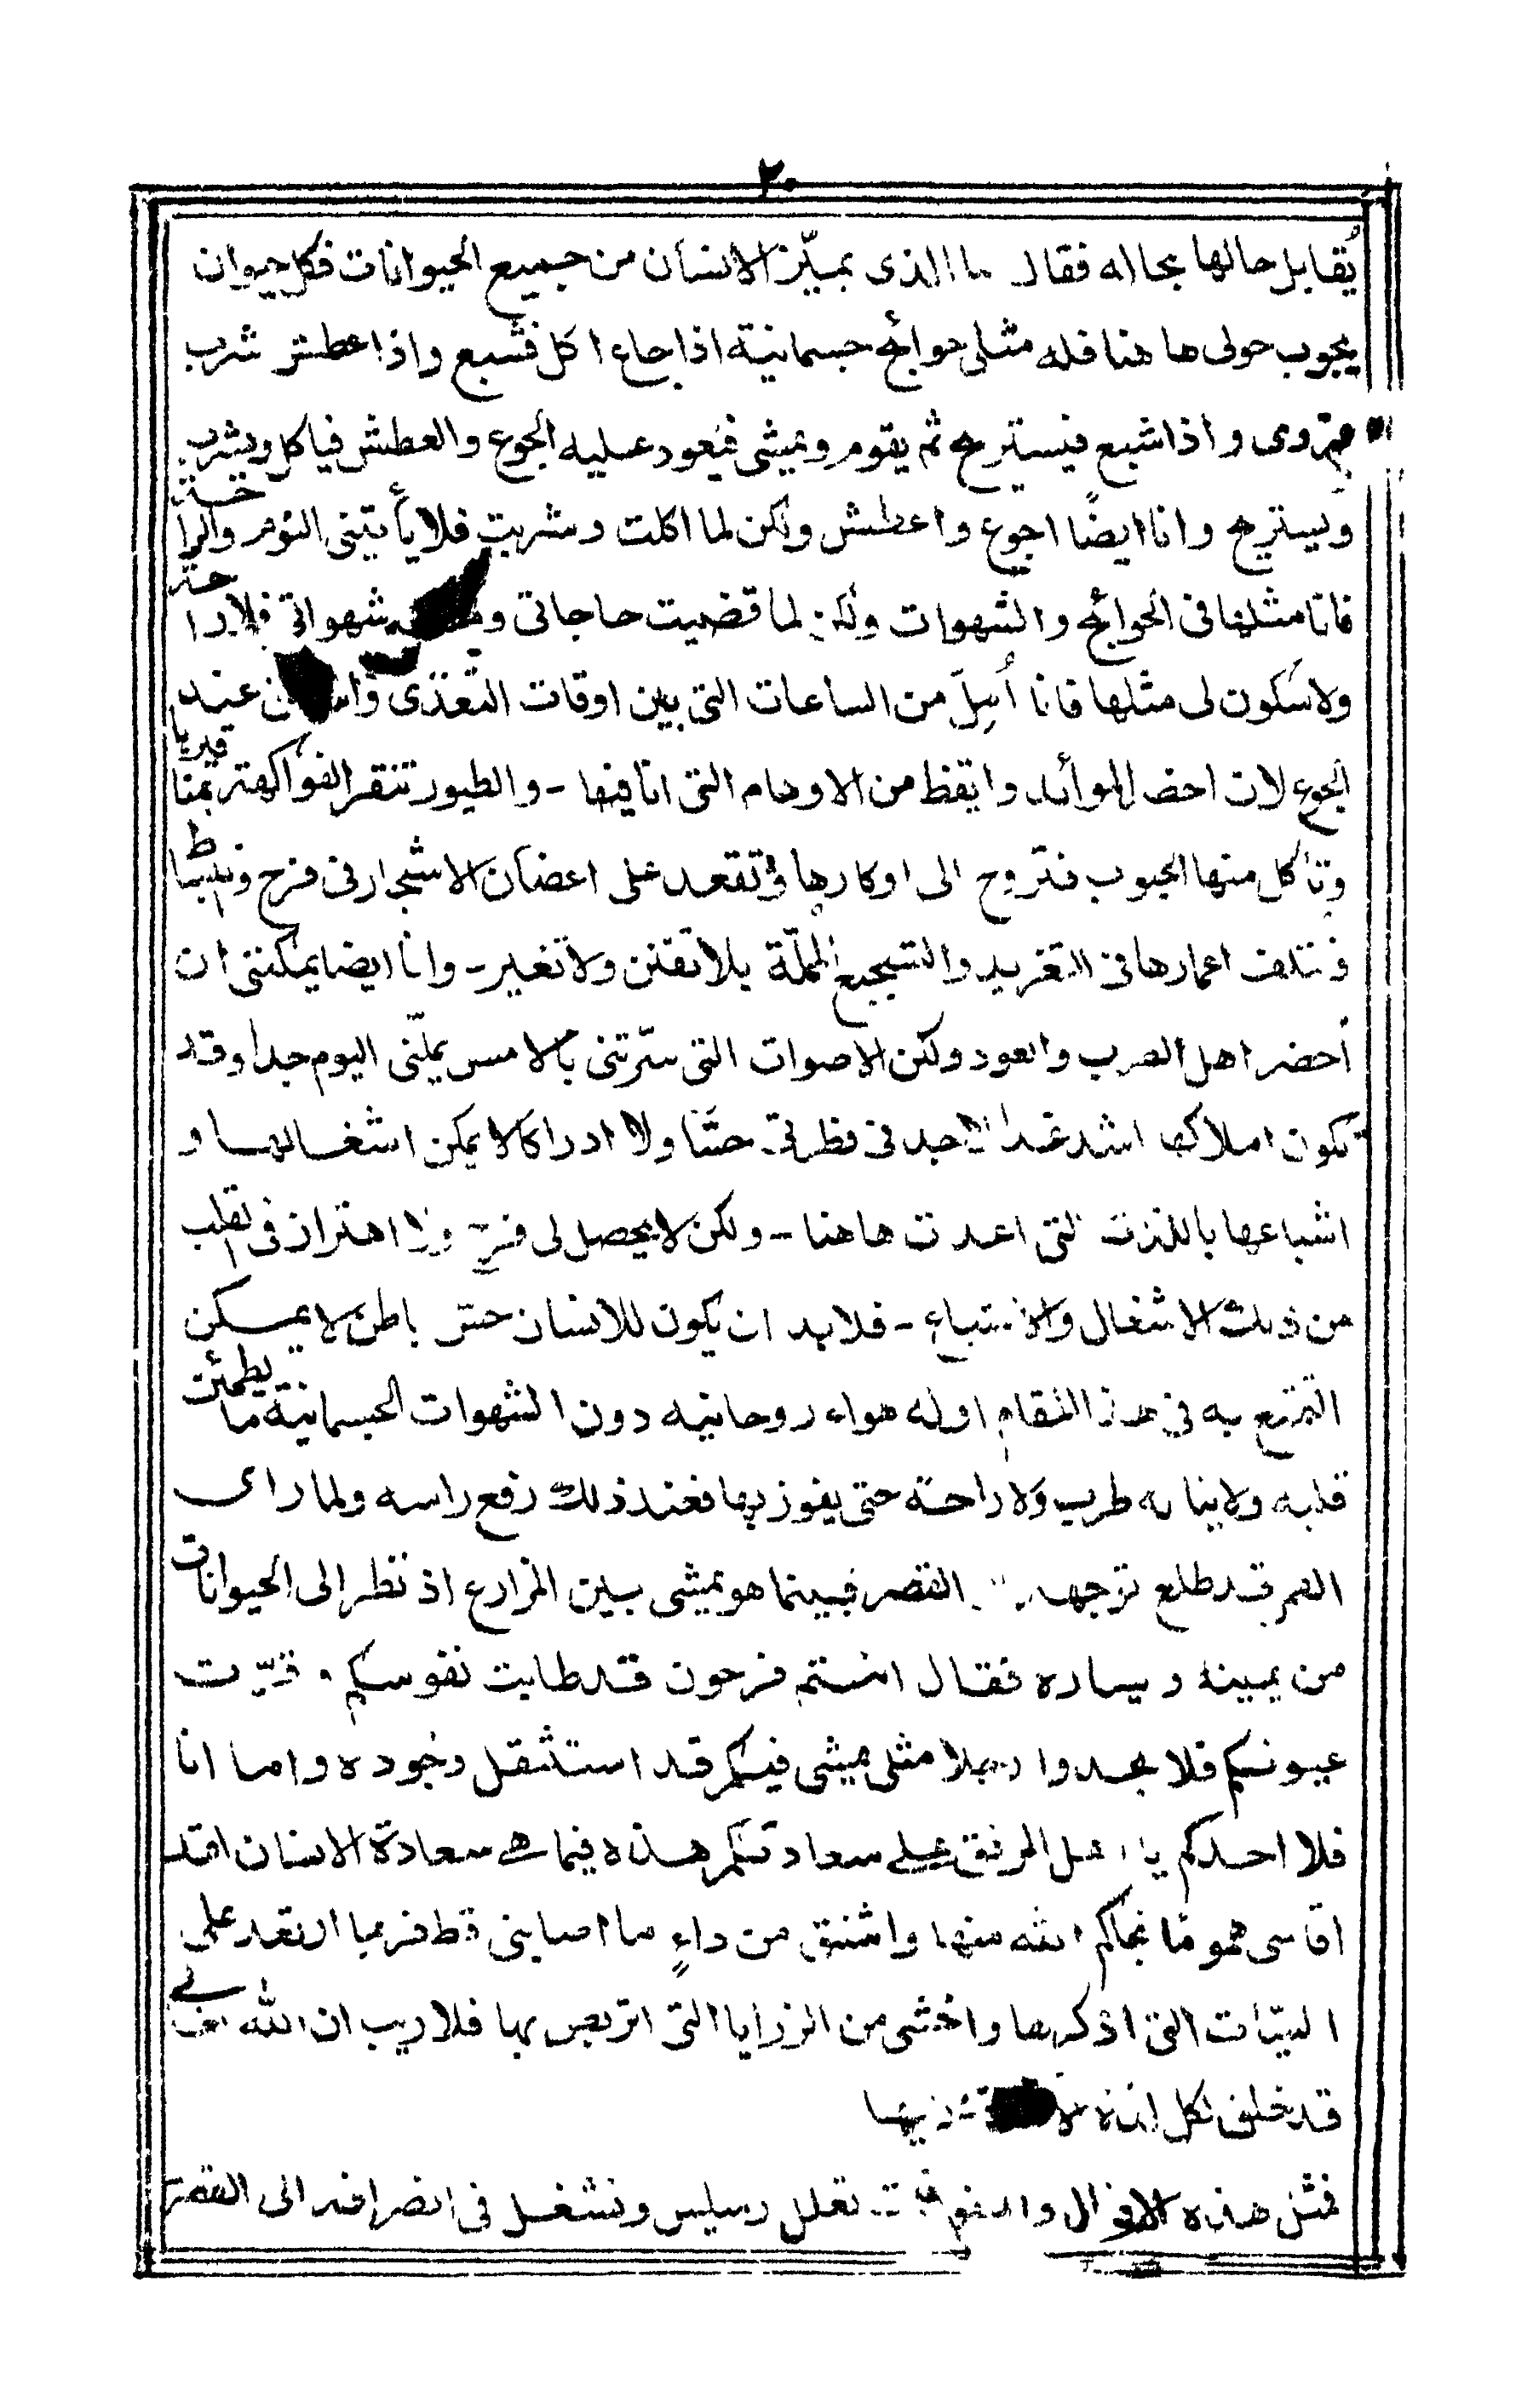 ٢٠
يُقابل حالها بحاله فقال ما الذى يميّز الانسان من جميع الحيوانات فكل حيوان
يجوب حولى ها هنا فله مثلى حوائج جسمانية اذا جاع اكل فشبع واذا عطش شرب
فتروى واذا شبع فيستريح ثم يقوم ويمشى فيعود عليه الجوع والعطش فياكل ويشرب
ويستريح وانا ايضًا اجوع واعطش ولكن لما اكلت وشربت فلا يأتينى النوم والراحة
فانا مثلها فى الحوائج والشهوات ولكن لما قضيت حاجاتى شهواتى فلا راحة
ولا سكون لى مثلها فانا أملّ من الساعات التى بين اوقات التغذى عند
الجوع لان احضر الموائد وايقظ من الاوهام التى انا فيها - والطيور تنقر الفواكه تربتمنا قيريا
وتأكل منها الحبوب فتروح الى اوكارها وتقعد على اغصان الاشجار فى فرح ونبساط
فتتلف اعمارها فى التغريد والتسجيع المملّة بلا تفنن ولا تغير - وانا ايضا يمكننى ان
أحضر اهل الضرب والعود ولكن الاصوات التى سرّتنى بالامس يملّنى اليوم جدا وقد
تكون املاكها اشد غدا لا اجد فى نظرتى حسّا ولا ادراكا لا يمكن اشغالها و
اشباعها باللذت التى اعدت هاهنا - ولكن لا يحصل لى ولا اهتزاز فى القلب
من ذلك الاشغال والاشباع - فلابد ان يكون للانسان حسّ باطن لا يمكن
التمتع به فى هذ المقام اوله هواء روحانيه دون الشهوات الجسمانية ما يطمئن
قلبه ولا يناله طرب ولا راحة حتى يفوز بها فعند ذلك رفع راسه ولما راى
القمر قد طلع توجه القصر فبينما هو يمشى بين المزارع اذ نظر الى الحيوانات
من يمينه ويساره فقال انتم فرحون قد طابت نفوسكم وقرّت
عيونكم فلا تحسدوا رجلا مثلى يمشى فيكم قد استثقل وجوده واما انا
فلا احسدكم يا اهل المرفق على سعادتكم هذه فيما هى سعادة الانسان اقد
اقاسى هموما نجاكم الله منها واشفق من داءٍ ما اصابنى قط فربما ارتعد على
البيّات التى اذكرها واخشى من الرزايا التى اتربص بها فلا ريب ان الله تعالى
قد خلق لكل لذة
فمثل هذه الاقوال تعلل رسيلس وتشغل فى انصرافه الى القصر